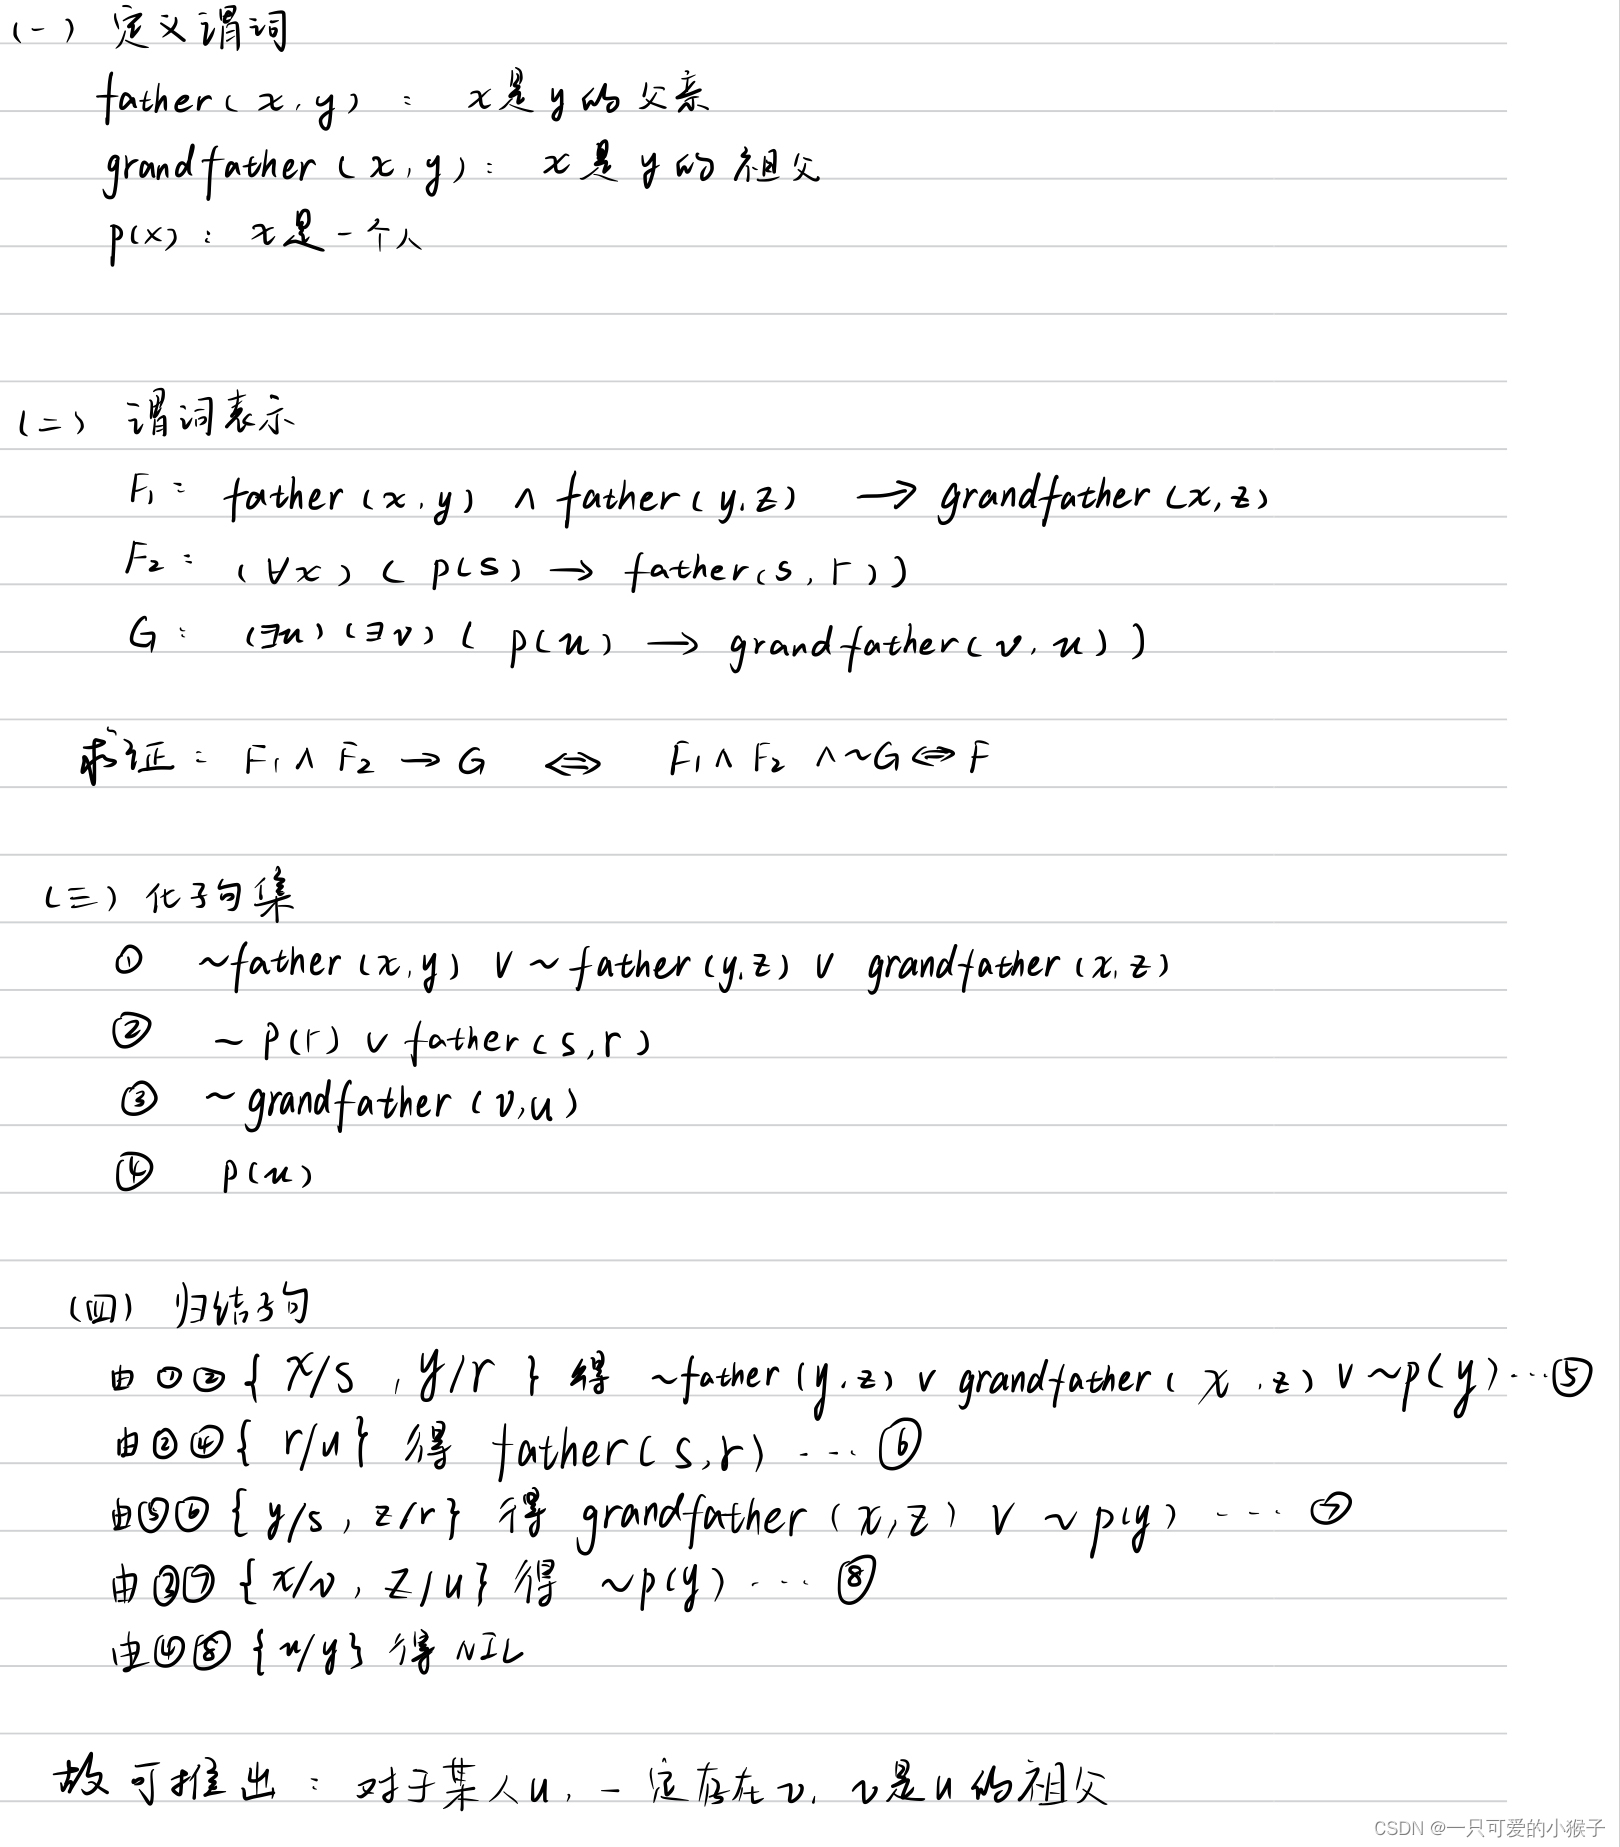 (一) 定义谓词
father(x,y): x是y的父亲
grandfather(x,y): x是y的祖父
p(x): x是一个人
(二) 谓词表示
F₁: father(x,y) ∧ father(y,z) → grandfather(x,z)
F₂: (∀x)(p(s) → father(s,r))
G: (∃u)(∃v)(p(u) → grandfather(v,u))
求证: F₁∧F₂→G ⟺ F₁∧F₂∧~G⟺F
(三) 化子句集
① ~father(x,y) ∨ ~father(y,z) ∨ grandfather(x,z)
② ~p(r) ∨ father(s,r)
③ ~grandfather(v,u)
④ p(u)
(四) 归结子句
由①②{x/s,y/r}得 ~father(y,z) ∨ grandfather(x,z) ∨ ~p(y)…⑤
由②④{r/u}得 father(s,r)…⑥
由⑤⑥{y/s,z/r}得 grandfather(x,z) ∨ ~p(y)…⑦
由③⑦{x/v,z/u}得 ~p(y)…⑧
由④⑧{u/y}得NIL
故可推出: 对于某人u,一定存在v,v是u的祖父
CSDN @一只可爱的小猴子